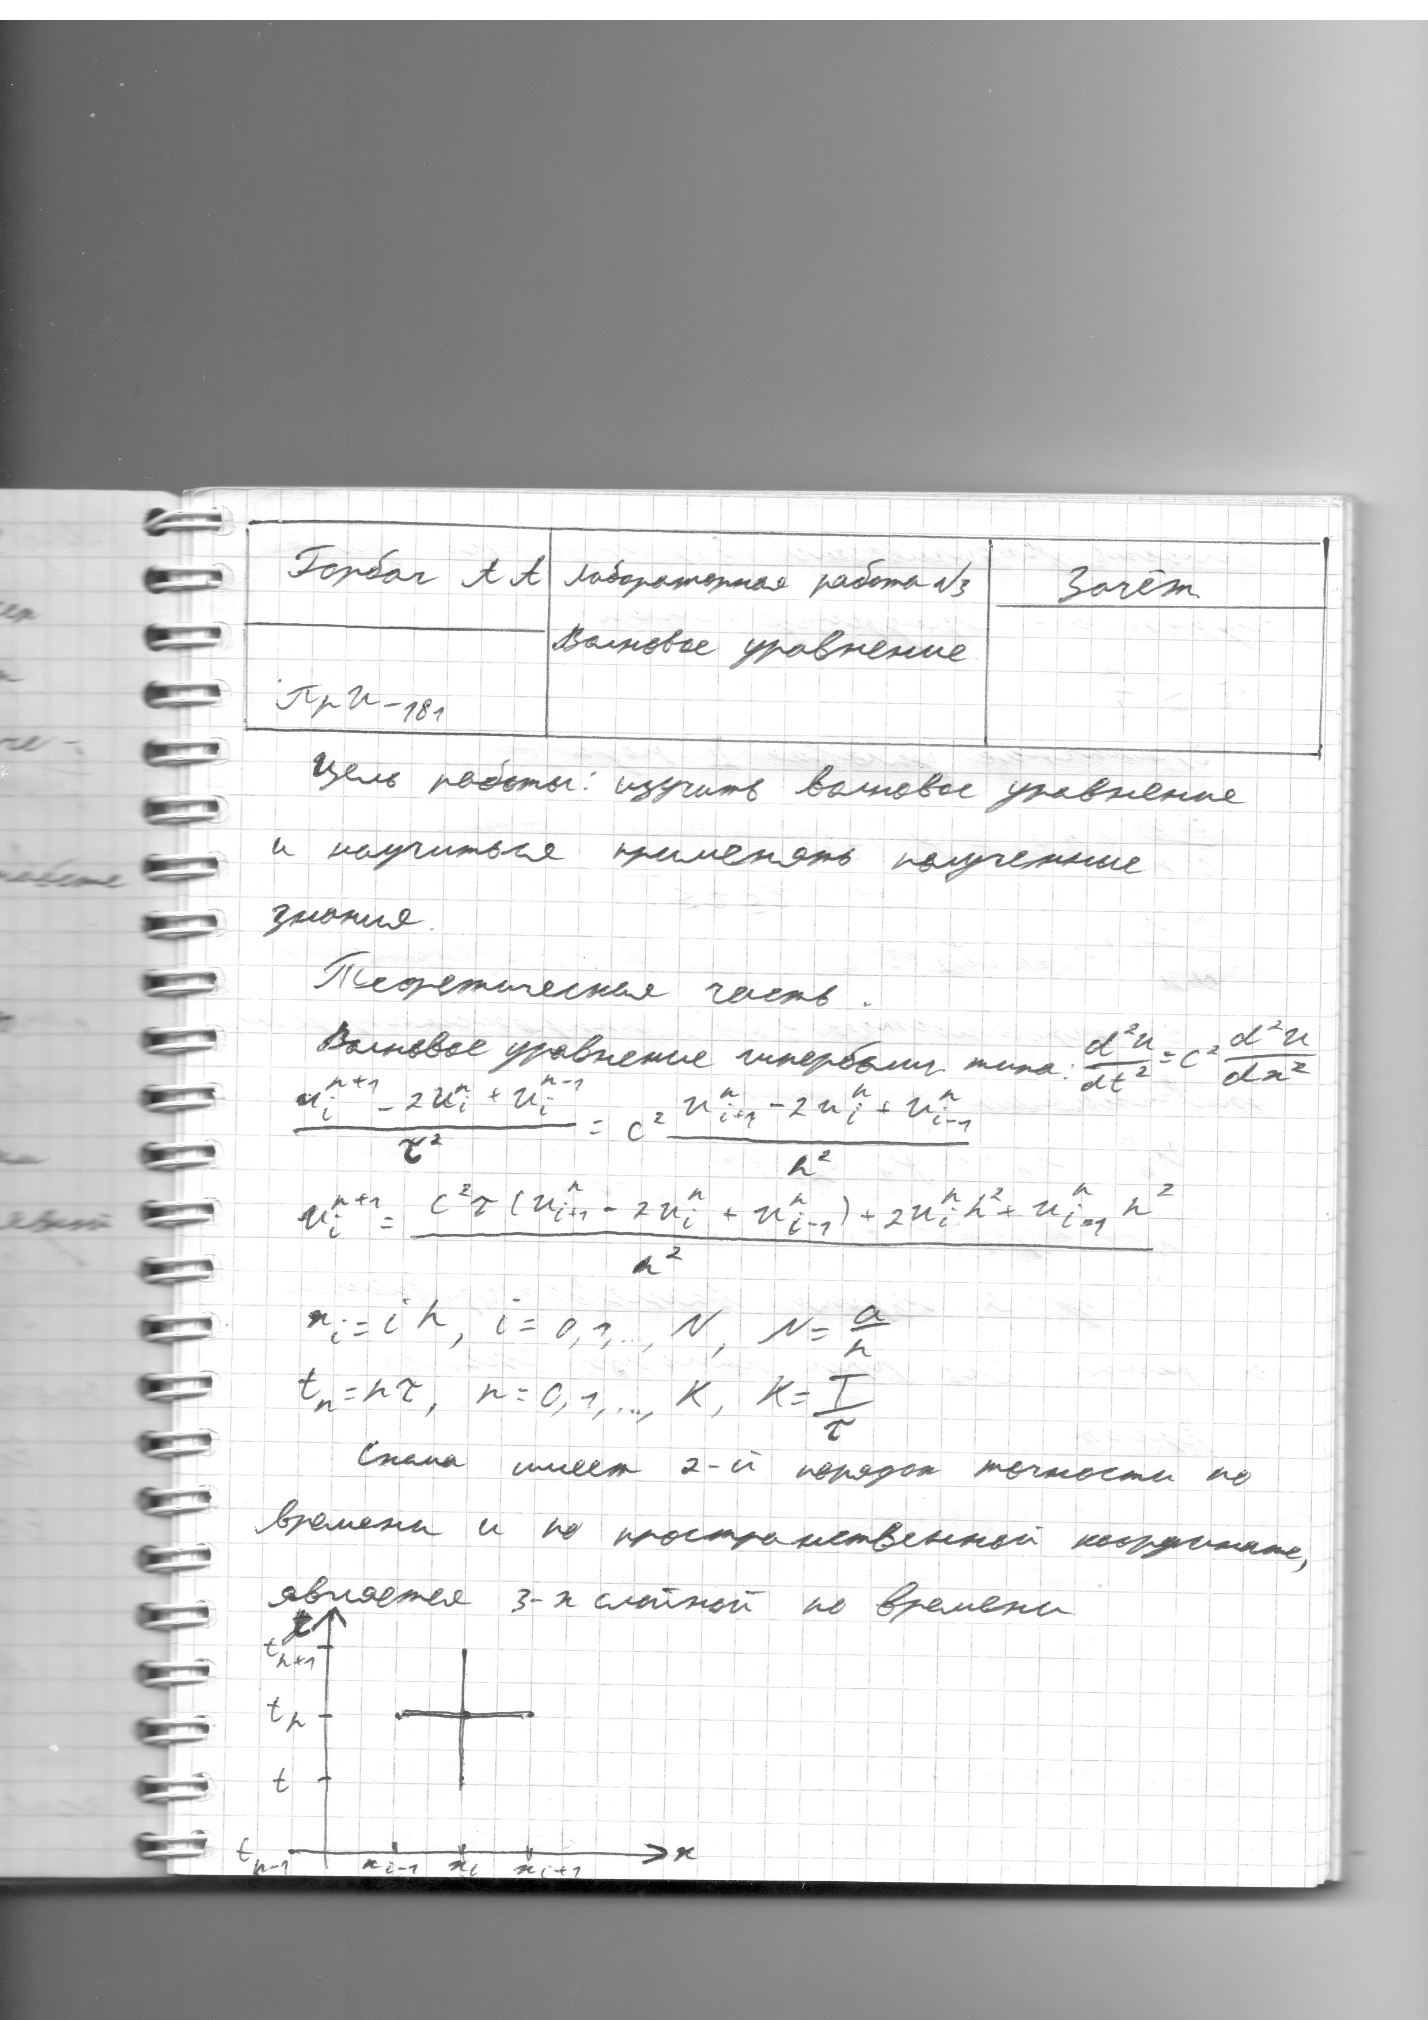 Горбач А А
Лабораторная работа №3
Зачёт
Волновое уравнение
ПрИ-181
Цель работы: изучить волновое уравнение
и научиться применять полученные
знания.
Теоретическая часть.
Волновое уравнение гипербол. типа: d²u/dt² = c² d²u/dx²
(u_i^{n+1} - 2u_i^n + u_i^{n-1})/τ² = c² (u_{i+1}^n - 2u_i^n + u_{i-1}^n)/h²
u_i^{n+1} = (c²τ(u_{i+1}^n - 2u_i^n + u_{i-1}^n) + 2u_i^n h² + u_{i-1}^n h²)/h²
x_i = ih, i = 0,1,.., N, N = a/h
t_n = nτ, n = 0,1,..., K, K = T/τ
Схема имеет 2-й порядок точности по
времени и по пространственной координате,
является 3-х слойной по времени
t
t_{n+1}
t_n
t
t_{n-1} x_{i-1} x_i x_{i+1} x